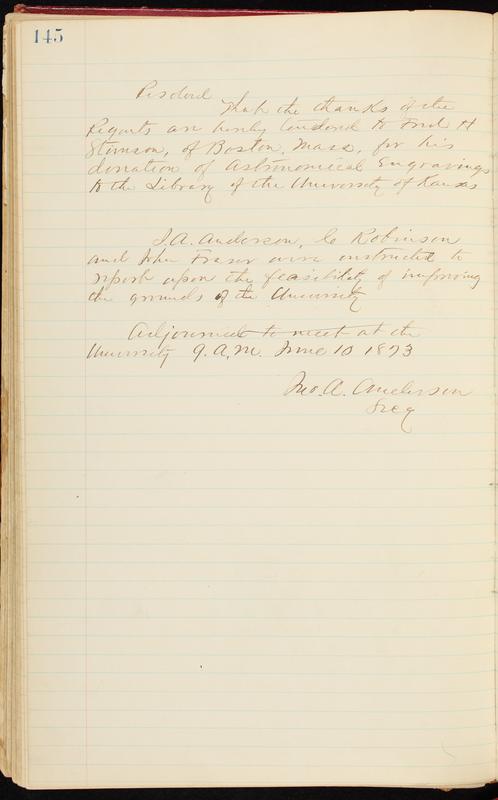 145
Resolved
That the thanks of the
Regents are hereby tendered to Fred H
Stimson, of Boston, Mass, for his
donation of Astronomical Engravings
to the Library of the University of Kansas
J.A. Anderson, C Robinson
and John Fraser were instructed to
report upon the feasibility of improving
the grounds of the University
Adjourned to meet at the
University 9. A.M. June 10 1873
Jno. A. Anderson
Secy